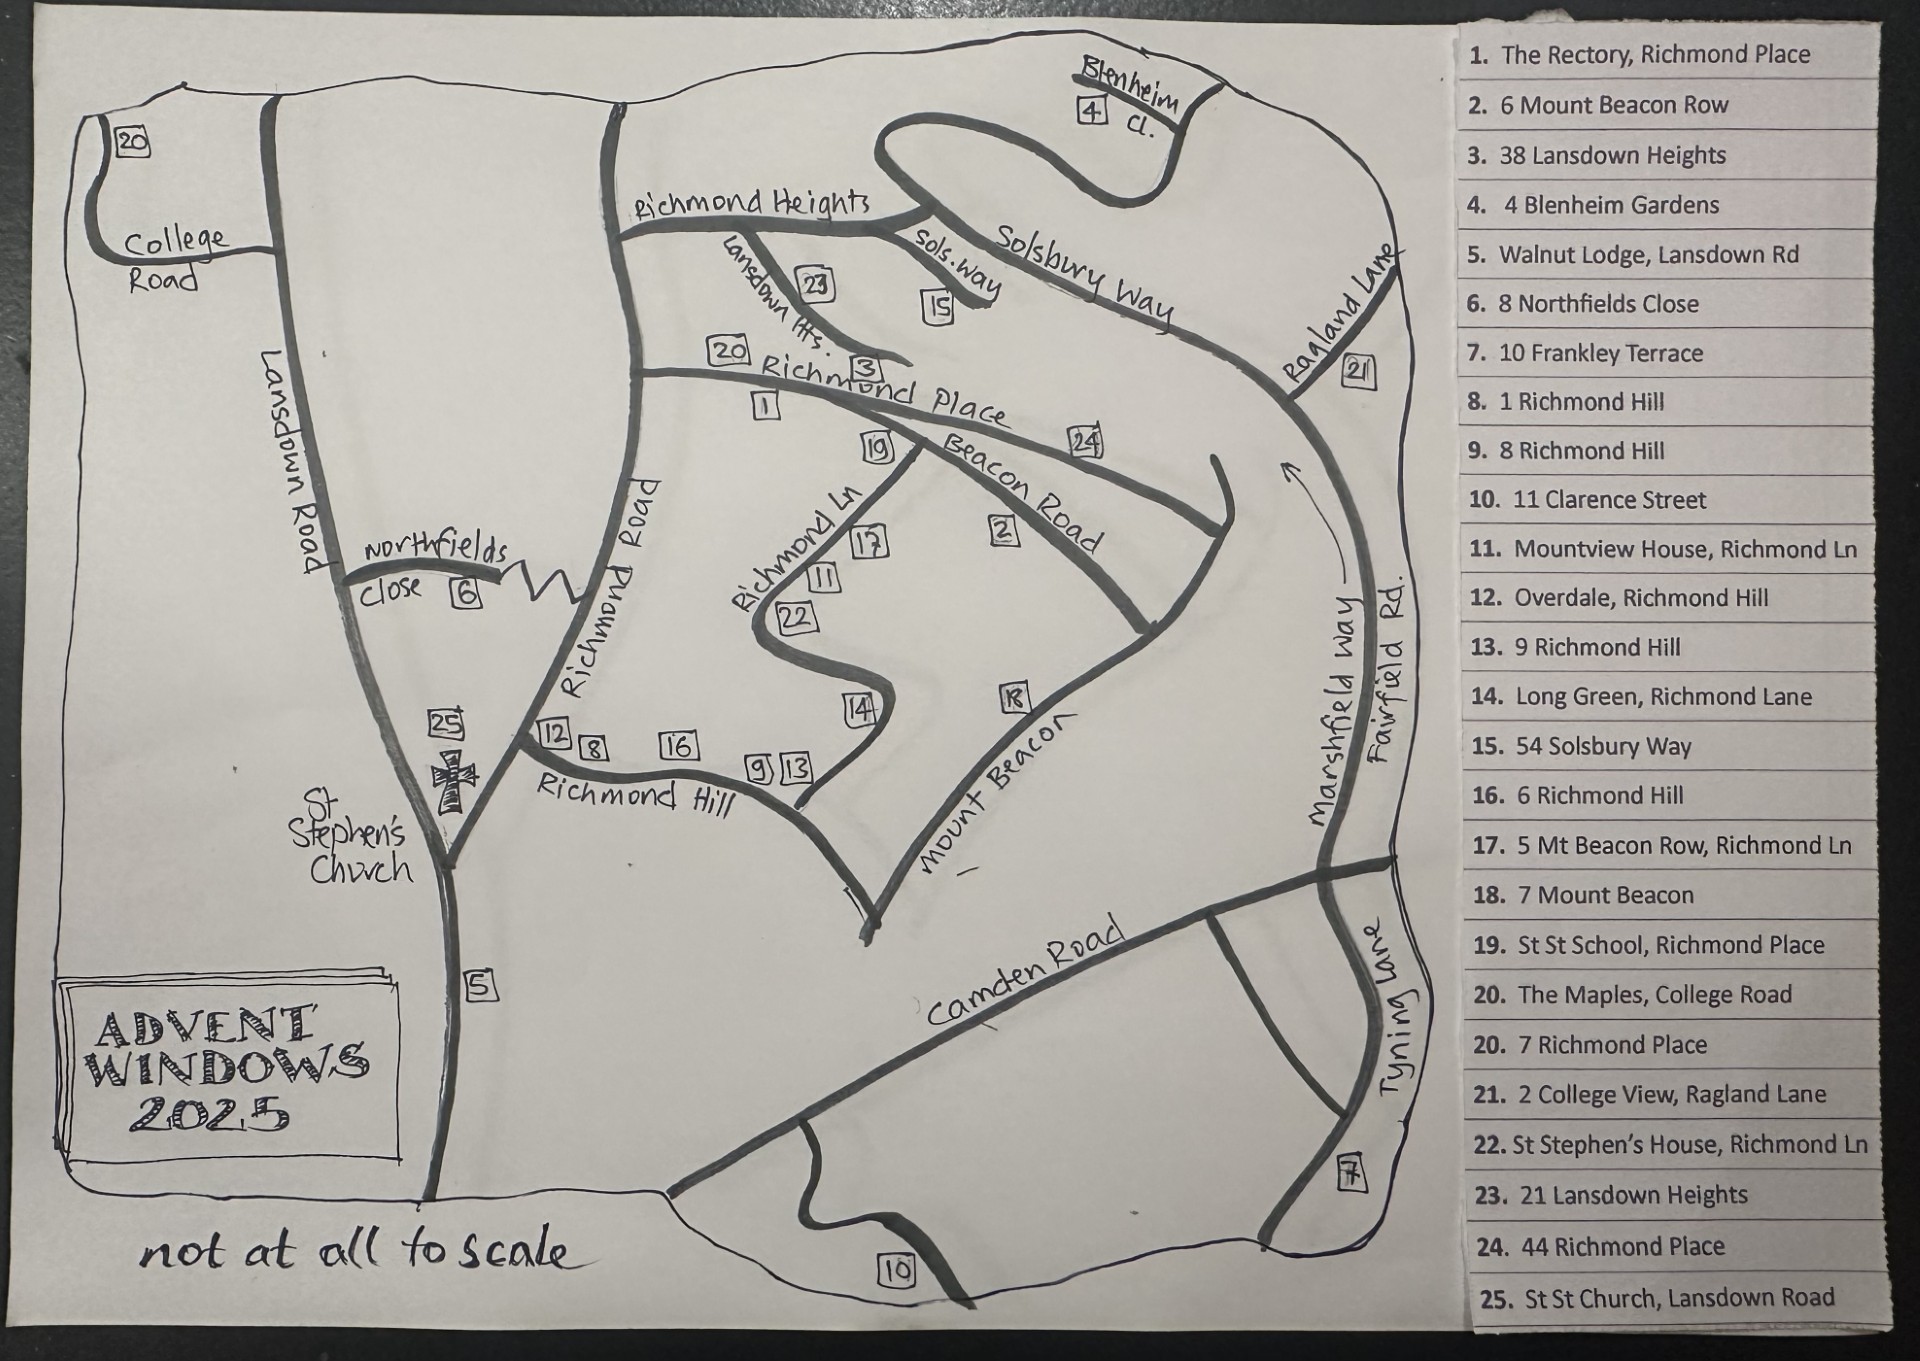 Blenheim
4
Cl.
20
College
Road
Richmond Heights
Sols.way
Solsbury Way
Lansdown Hts.
23
15
Ragland Lane
21
20
3
Richmond Place
1
Lansdown Road
19
24
Beacon Road
Richmond Road
Richmond Ln
17
2
11
22
Northfields
Close
6
Richmond Road
Marshfield Way
Fairfield Rd.
25
12
8
16
9
13
14
18
Richmond Hill
Mount Beacon
St
Stephen's
Church
5
Camden Road
Tyning Lane
7
10
ADVENT
WINDOWS
2025
not at all to scale
1. The Rectory, Richmond Place
2. 6 Mount Beacon Row
3. 38 Lansdown Heights
4. 4 Blenheim Gardens
5. Walnut Lodge, Lansdown Rd
6. 8 Northfields Close
7. 10 Frankley Terrace
8. 1 Richmond Hill
9. 8 Richmond Hill
10. 11 Clarence Street
11. Mountview House, Richmond Ln
12. Overdale, Richmond Hill
13. 9 Richmond Hill
14. Long Green, Richmond Lane
15. 54 Solsbury Way
16. 6 Richmond Hill
17. 5 Mt Beacon Row, Richmond Ln
18. 7 Mount Beacon
19. St St School, Richmond Place
20. The Maples, College Road
20. 7 Richmond Place
21. 2 College View, Ragland Lane
22. St Stephen's House, Richmond Ln
23. 21 Lansdown Heights
24. 44 Richmond Place
25. St St Church, Lansdown Road